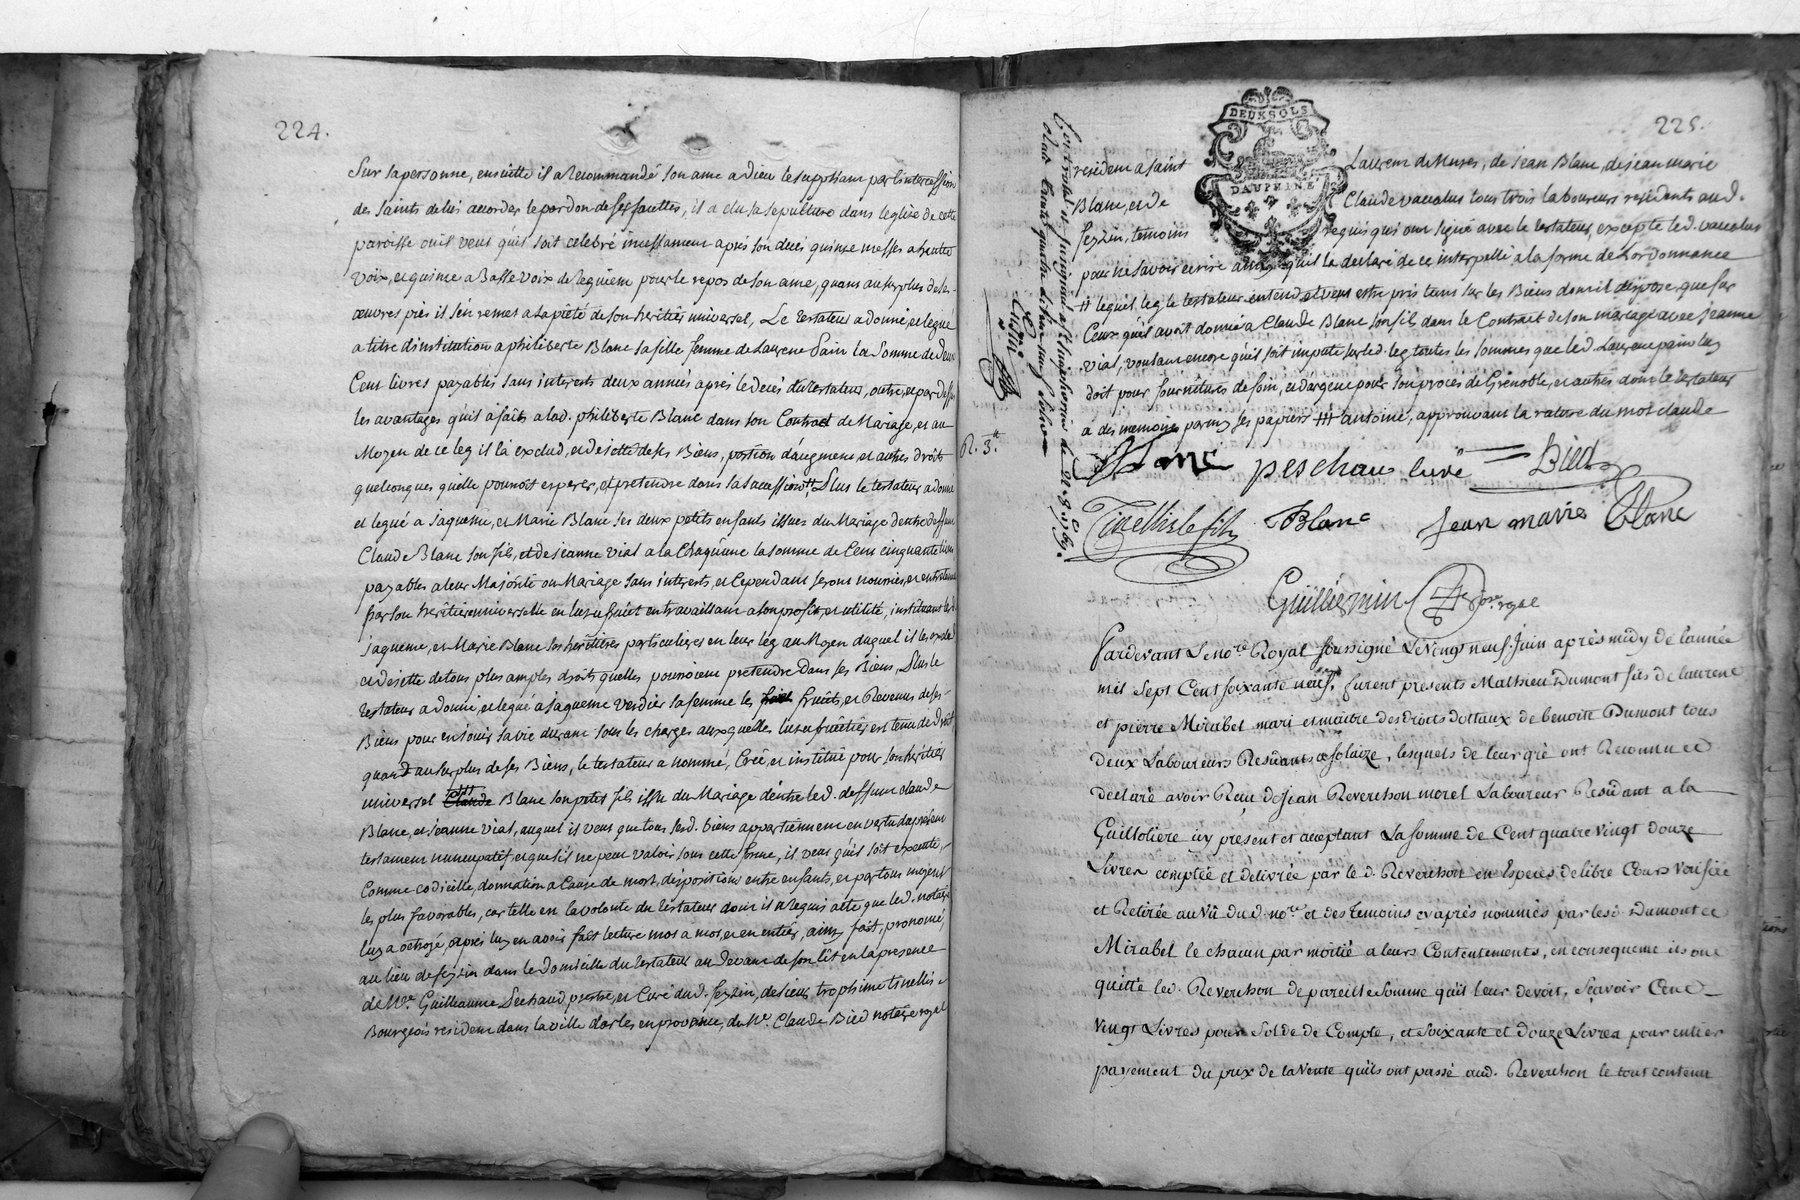 224.
Sur sa personne, ensuitte il a Recommandé son ame a dieu le suppliant par l'intercession
des saints de lui accorder le pardon de ses fauttes, il a elu sa sepulture dans l'eglise de cette
paroisse ou il veut qu'il soit celebré incessament apres son deces quinze messes a hautte
voix, et quinze a Basse voix de Requiem pour le repos de son ame, quant au surplus de ses
œuvres pies il s'en remet a la piété de son heritier universel, Le testateur a donné, et legué
a titre d'institution a philiberte Blanc sa fille femme de Laurent Pain la somme de deux
Cent livres payables sans interests deux années apres le deces du testateur, outre, et par dessus
les avantages qu'il a faits a lad. philiberte Blanc dans son Contract de Mariage, et au
Moyen de ce leg il l'a exclud, et dejette de ses Biens, portion d'augment, et autres droits
quelconques quelle pourroit esperer, et pretendre dans sa succession # Plus le testateur a donné
et legué a jaqueme, et Marie Blanc ses deux petits enfants issues du Mariage d'entre dessunt
Claude Blanc son fils, et de jeanne vial a la Chaqu'une la somme de Cent cinquante livres
payables a leur Majorité ou Mariage sans interests, et Cependant seront nourries, et entretenues
par son heritiere universelle en luzufruict en travaillant a son profit, et utilité, instituant lesd.
jaqueme, et Marie Blanc ses heritieres particulieres en leur leg au Moyen duquel il les exclud
et dejette de tous plus amples droits quelles pourroient pretendre Dans ses Biens, Plus le
testateur a donné, et legué a jaqueme verdier sa femme les fruits, et Revenus de ses
Biens pour en jouir sa vie durant sous les charges auxquelles luzufruitier est tenu de droit,
quand au surplus de ses Biens, le testateur a nommé, Créé, et institué pour son heritier
universel Claude ### Blanc son petit fils issu du Mariage d'entre led. deffunt claude
Blanc, et jeanne vial, auquel il veut que tous sesd. biens appartiennent en vertu du present
testament nuncupatif et que s'il ne peut valoir sous cette forme, il veut qu'il soit executé
Comme codicille, donnation a Cause de mort, disposition entre enfants, et par tous moyens
les plus favorables, car telle est la volonté du testateur dont il a requis acte que led. notaire
luy a octroyé, apres luy en avoir fait lecture mot a mot, et en entier, ainsy fait, prononcé,
au lieu de feyzin dans le Domicille du testateur au devant de son lit en la presence
de Mre Guilliaume Pechaud pretre, et Curé dud. feyzin, de sieur trophime tinellis
Bourgeois resident dans la ville d'arles en provence, de Me. Claude Bied notaire royal
225.
DEUX SOLS
DAUPHINE
resident a saint Laurent de Mures, de jean Blanc, de jean marie
Blanc, et de Claude vacalus tous trois laboureurs residents aud.
feyzin, temoins requis qui ont signé avec le testateur, excepté led. vacalus
pour ne savoir ecrire ainsy qu'il l'a declaré de ce interpellé a la forme de l'ordonnance
# lequel leg le testateur entend, et veut estre pris tant sur les Biens dont il dispose que sur
Ceux qu'il avoit donné a Claude Blanc son fils dans le Contract de son mariage avec jeanne
vial, voulant encore qu'il soit imputé sur led. leg toutes les sommes que led. Laurent pain luy
doit pour fournitures de foin, et d'argent pour son procés de Grenoble, et autres dont le testateur
a des memoires parmy ses papiers ### antoine, approuvant la rature du mot claude
R. 3.tt
Blanc peschau curé Bied
Tinellis le fils Blanc jean marie Blanc
Guilliermin Nore. royal
Pardevant Le nore Royal soussigné Le Vingt neuf Juin après midy de l'année
mil Sept Cent soixante neuf, furent presents Mathieu Dumont fils de laurent
et pierre Mirabel mari et maitre des droits dottaux de benoite Dumont tous
deux Laboureurs Residants a Solaize, lesquels de leur gré ont Reconnu et
declaré avoir Reçu de Jean Reverchon morel Laboureur Residant a la
Guillotiere icy present et acceptant La somme de Cent quatre Vingt douze
Livres comptée et delivrée par le d. Reverchon en Especes de libre Cours Verifiée
et Retirée au Vû du d. nore. et des temoins cy après nommés par lesd. Dumont et
Mirabel le chacun par moitié a leurs Contentements, en consequence ils ont
quitté led. Reverchon de pareille Somme qu'il leur devoit, Sçavoir Cent
Vingt Livres pour Solde de Compte, et Soixante et douze Livres pour entier
payement du prix de la Vente qu'ils ont passé aud. Reverchon le tout contenu